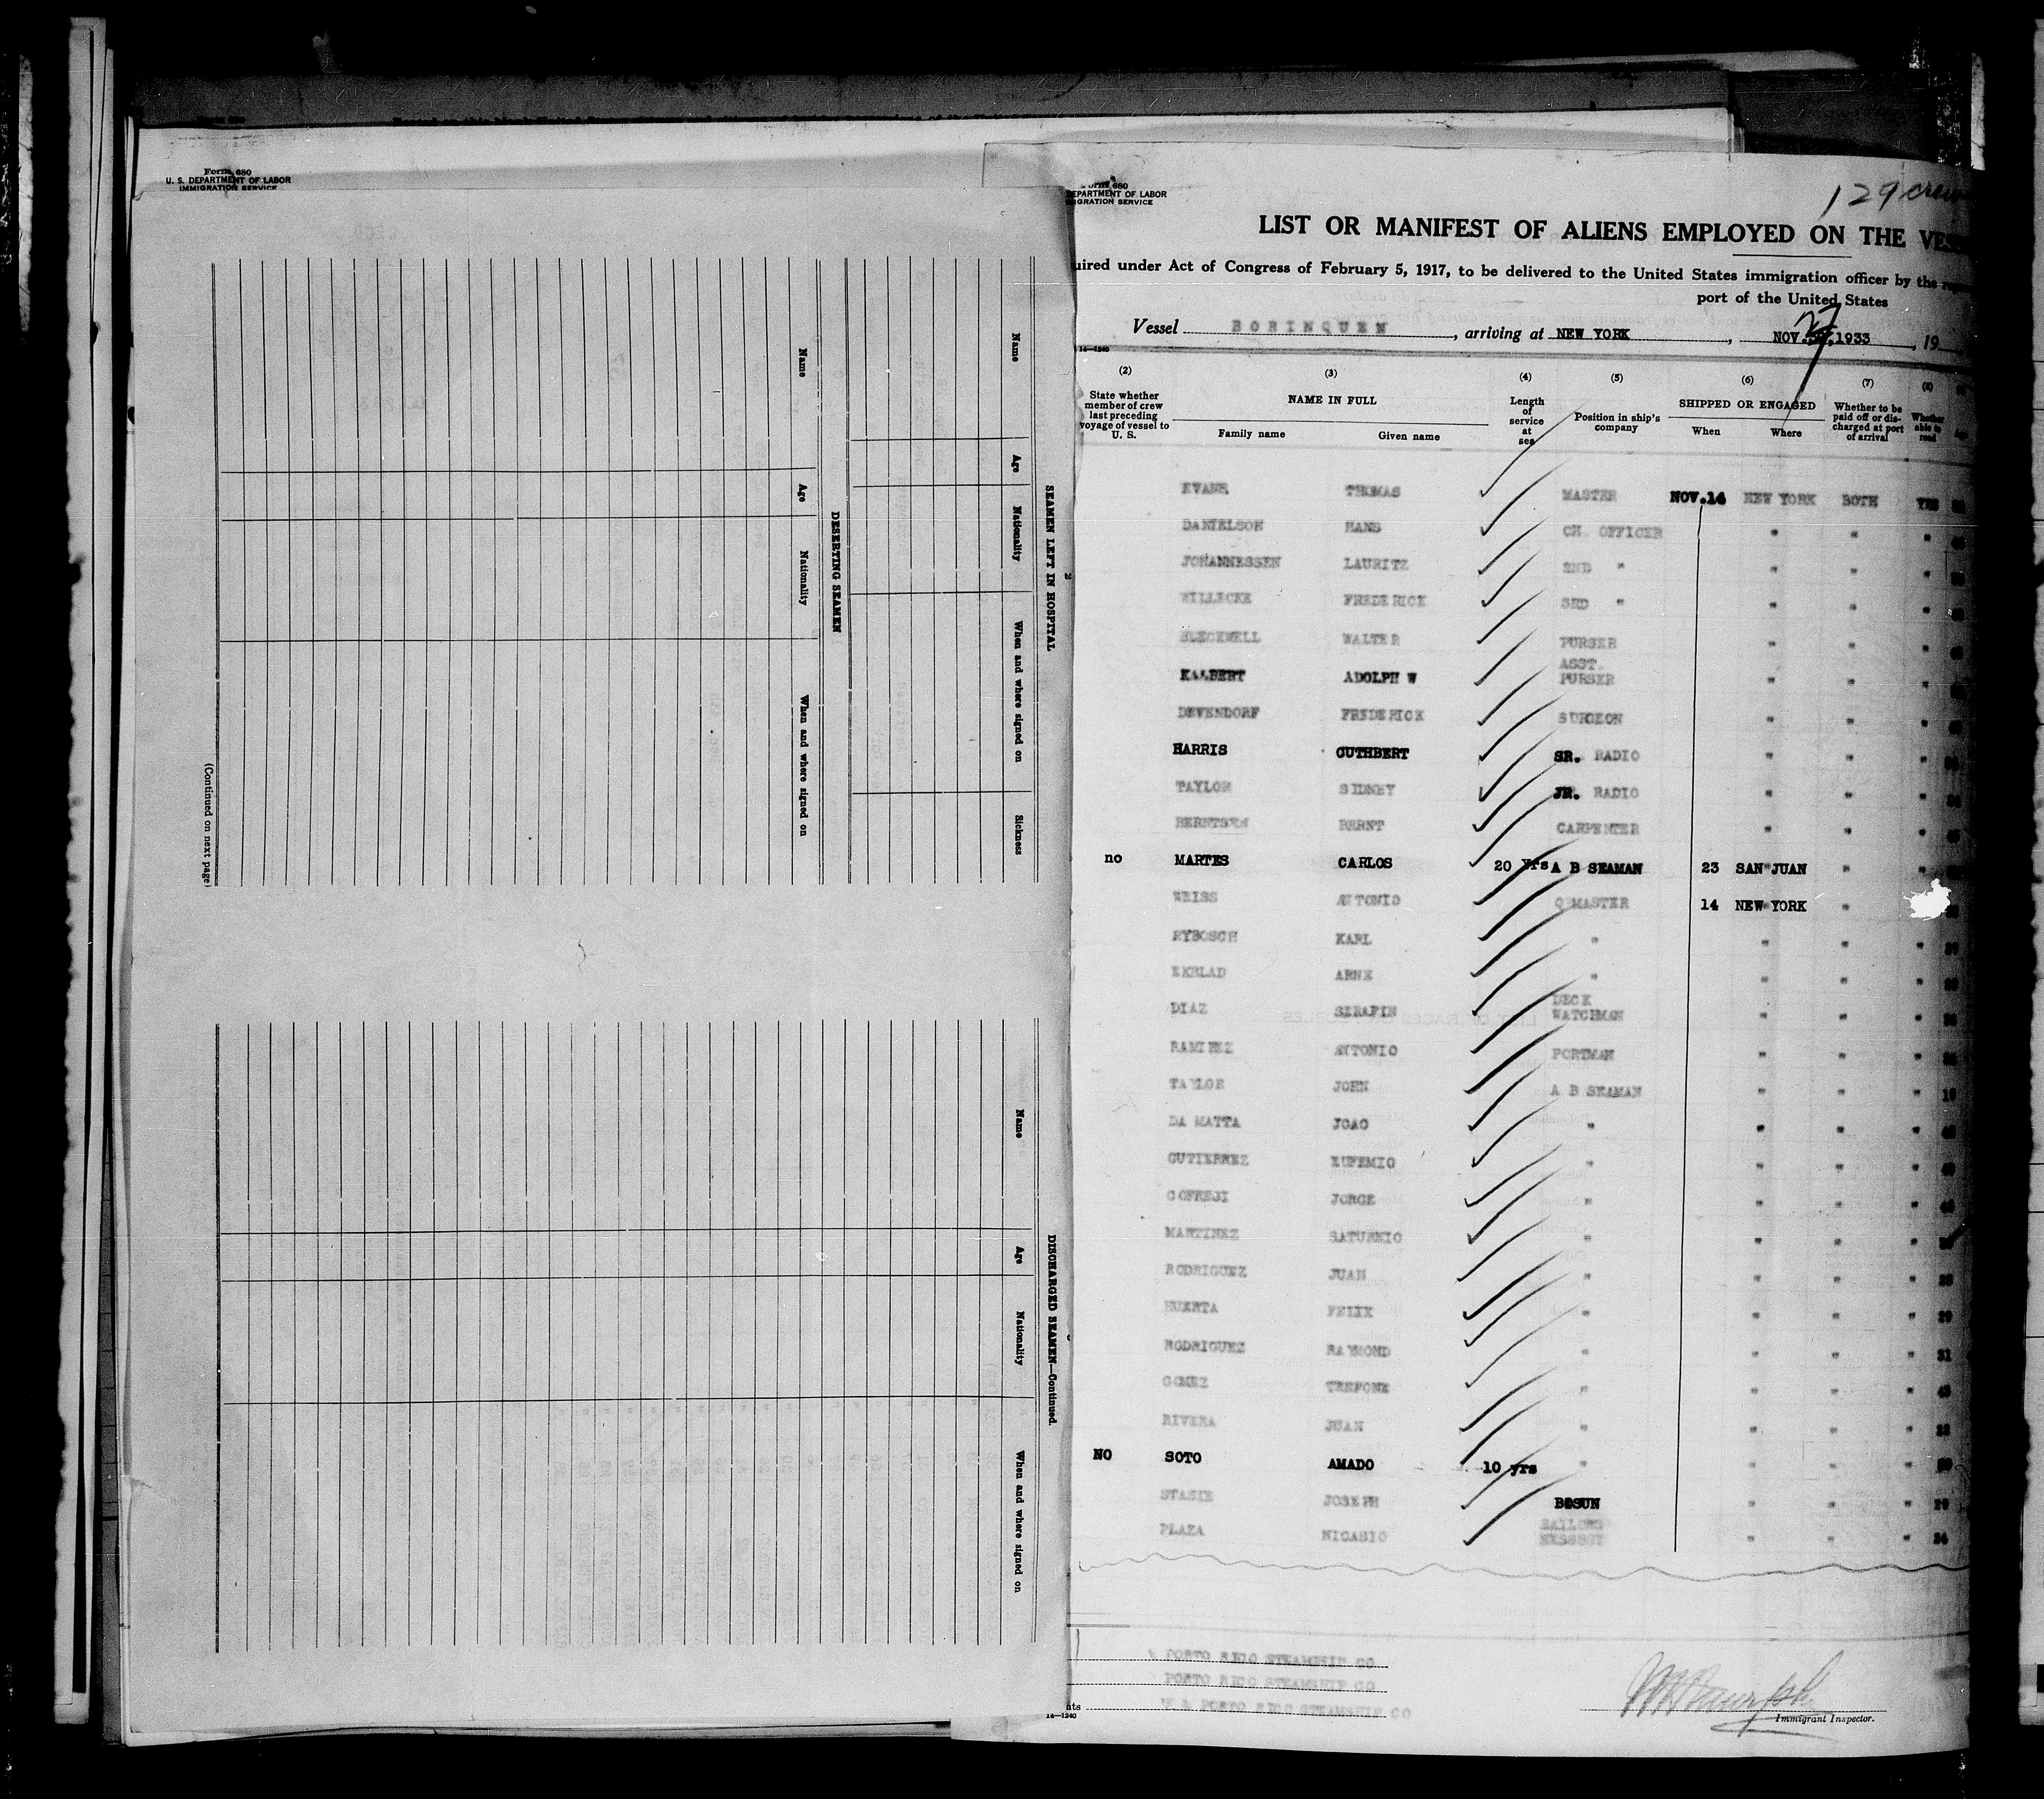 Form 680
U. S. DEPARTMENT OF LABOR
IMMIGRATION SERVICE
SEAMEN LEFT IN HOSPITAL
Name
Age
Nationality
When and where signed on
Sickness
DESERTING SEAMEN
Name
Age
Nationality
When and where signed on
(Continued on next page)
DISCHARGED SEAMEN—Continued.
Name
Age
Nationality
When and where signed on
2
Form 680
DEPARTMENT OF LABOR
IGRATION SERVICE
129 crew
LIST OR MANIFEST OF ALIENS EMPLOYED ON THE VES
uired under Act of Congress of February 5, 1917, to be delivered to the United States immigration officer by the
port of the United States
Vessel BORINQUEN, arriving at NEW YORK, NOV. 27, 1933, 19
14—1240
(2) (3) (4) (5) (6) (7) (8)
State whether member of crew last preceding voyage of vessel to U. S.
NAME IN FULL
Family name Given name
Length of service at sea
Position in ship's company
SHIPPED OR ENGAGED
When Where
Whether to be paid off or discharged at port of arrival
Whether able to read
EVANS THOMAS MASTER NOV.14 NEW YORK BOTH YES
DANIELSON HANS CH. OFFICER " " "
JOHANNESSEN LAURITZ 2ND " " " "
WILLECKE FREDERICK 3RD " " " "
WALTER PURSER " " "
KALBERT ADOLPH W ASST. PURSER " " "
DEVENDORF FREDERICK SURGEON " " "
HARRIS CUTHBERT SR. RADIO " " "
TAYLOR SIDNEY JR. RADIO " " "
BERNTSEN BERNT CARPENTER " " "
no MARTES CARLOS 20 Yrs A B SEAMAN 23 SAN JUAN " "
WEISS ANTONIO Q MASTER 14 NEW YORK "
RYBOSCH KARL " " " "
EKELAD ARNE " " " "
DIAZ SERAFIN DECK WATCHMAN " " "
RAMIREZ ANTONIO PORTMAN " " "
TAYLOR JOHN A B SEAMAN " " " 19
DA MATTA JOAO " " " "
GUTIERREZ EUFEMIO " " " "
COFRESI JORGE " " " "
MARTINEZ SATURNIO " " " "
RODRIGUEZ JUAN " " " "
HUERTA FELIX " " " " 29
RODRIGUEZ RAYMOND " " " " 31
GOMEZ TREFONE " " " "
RIVERA JUAN " " " "
NO SOTO AMADO 10 yrs " " " "
STASIE JOSEPH BOSUN " " " 29
PLAZA NICASIO SAILORS MESSBOY " " " 24
PORTO RICO STEAMSHIP CO
PORTO RICO STEAMSHIP CO
PORTO RICO STEAMSHIP CO
nts
14—1240
Immigrant Inspector.